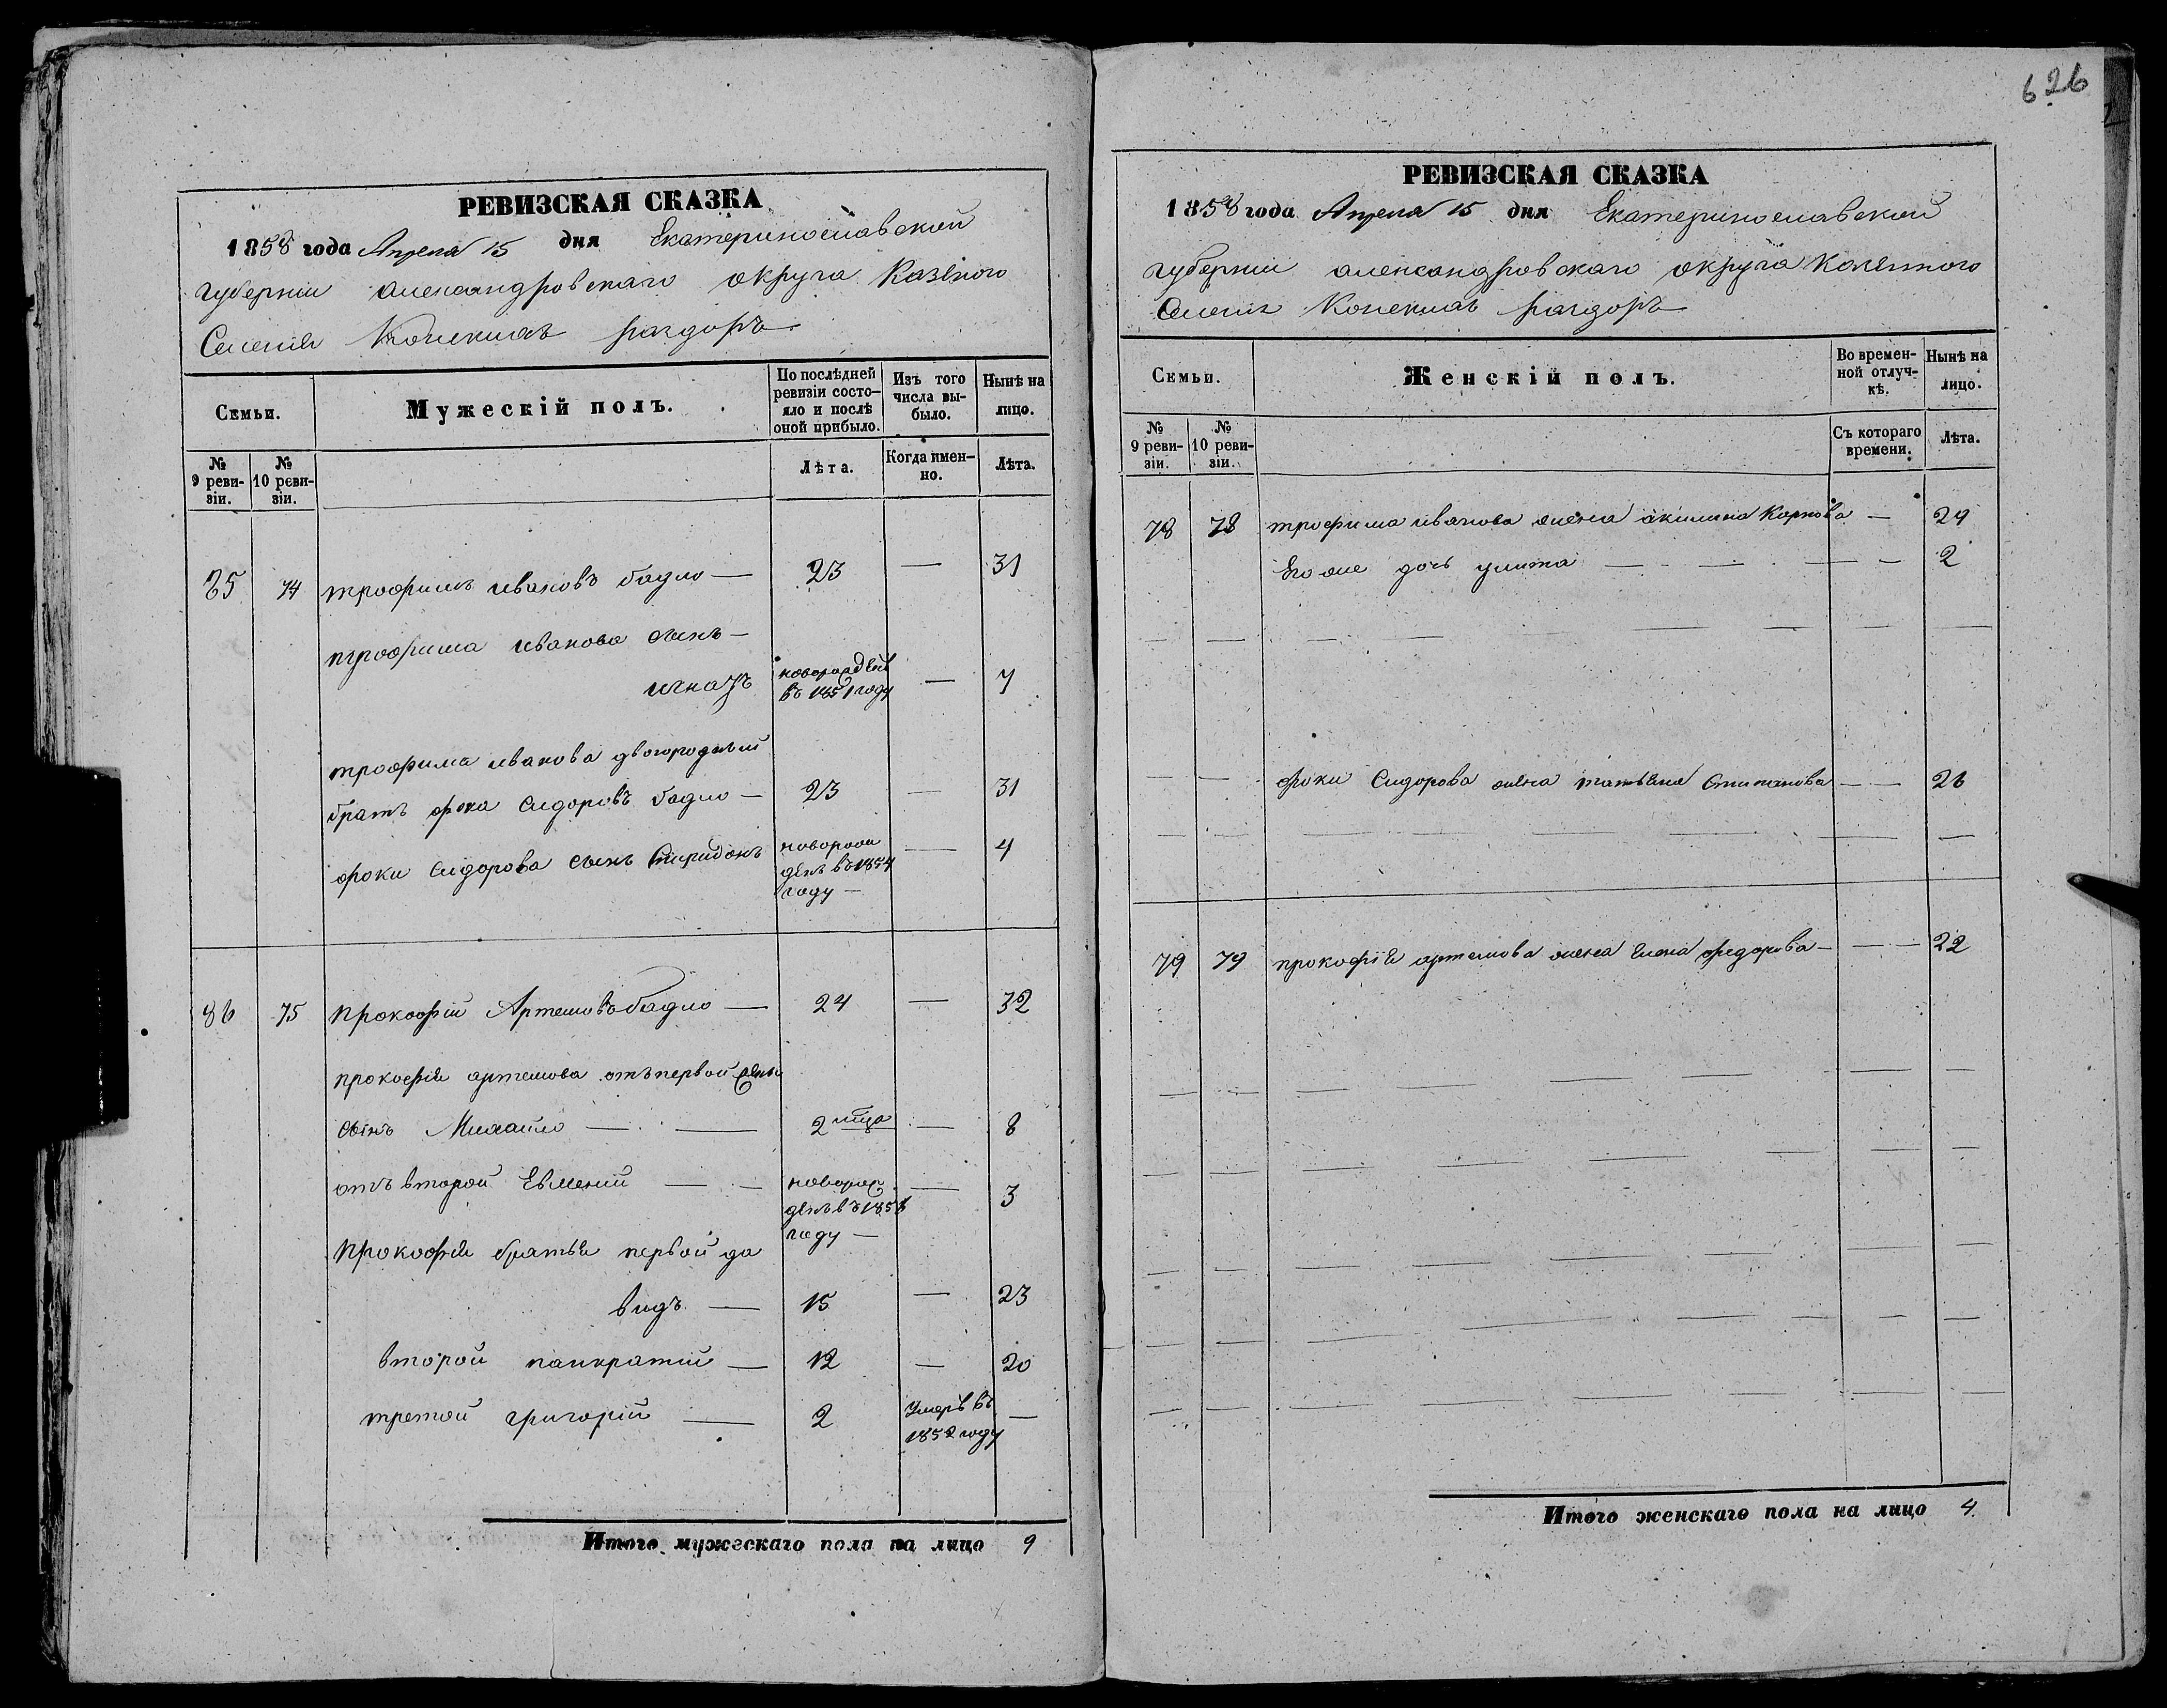 626
РЕВИЗСКАЯ СКАЗКА
1858 года Апреля 15 дня Екатеринославской
губернии александровскаго округа Казеного
Селения раздоръ
Семьи.
Мужескій полъ.
По послѣдней ревизіи состояло и послѣ оной прибыло.
Изъ того числа выбыло.
Нынѣ на лицо.
№ 9 ревизіи.
№ 10 ревизіи.
Лѣта.
Когда именно.
Лѣта.
85 74 трофимъ ивановъ бадло — 23 — 31
трофима иванова сынъ —
игнатъ новорожденъ въ 1851 году — 7
трофима иванова двоюродный
братъ фока сидоровъ бадло — 23 — 31
фоки сидорова сынъ Спиридонъ новорожденъ въ 1854 году — — 4
86 75 прокофий Артемовъ бадло — 24 — 32
прокофія артемова отъ первой жены
сынъ Михайло — — 2 мца — 8
отъ второй Евмений — — году — — 3
прокофия братья первой да
видъ — 15 — 23
второй панкратий — 12 — 20
третой григорий — 2 Умеръ въ 1852 году —
Итого мужескаго пола на лицо 9
РЕВИЗСКАЯ СКАЗКА
1858 года Апреля 15 дня Екатеринославской
губернии александровскаго округа Казенного
раздоръ
Семьи.
Женскій полъ.
Во временной отлучкѣ.
Нынѣ на лицо.
№ 9 ревизіи.
№ 10 ревизіи.
Съ котораго времени.
Лѣта.
78 78 трофима иванова жена акилина Карпова — 29
Его же дочь улита — — — — 2
фоки Сидорова жена татьяна Степанова — — 26
79 79 прокофія артемова жена Елена федорова — — — 22
Итого женскаго пола на лицо 4